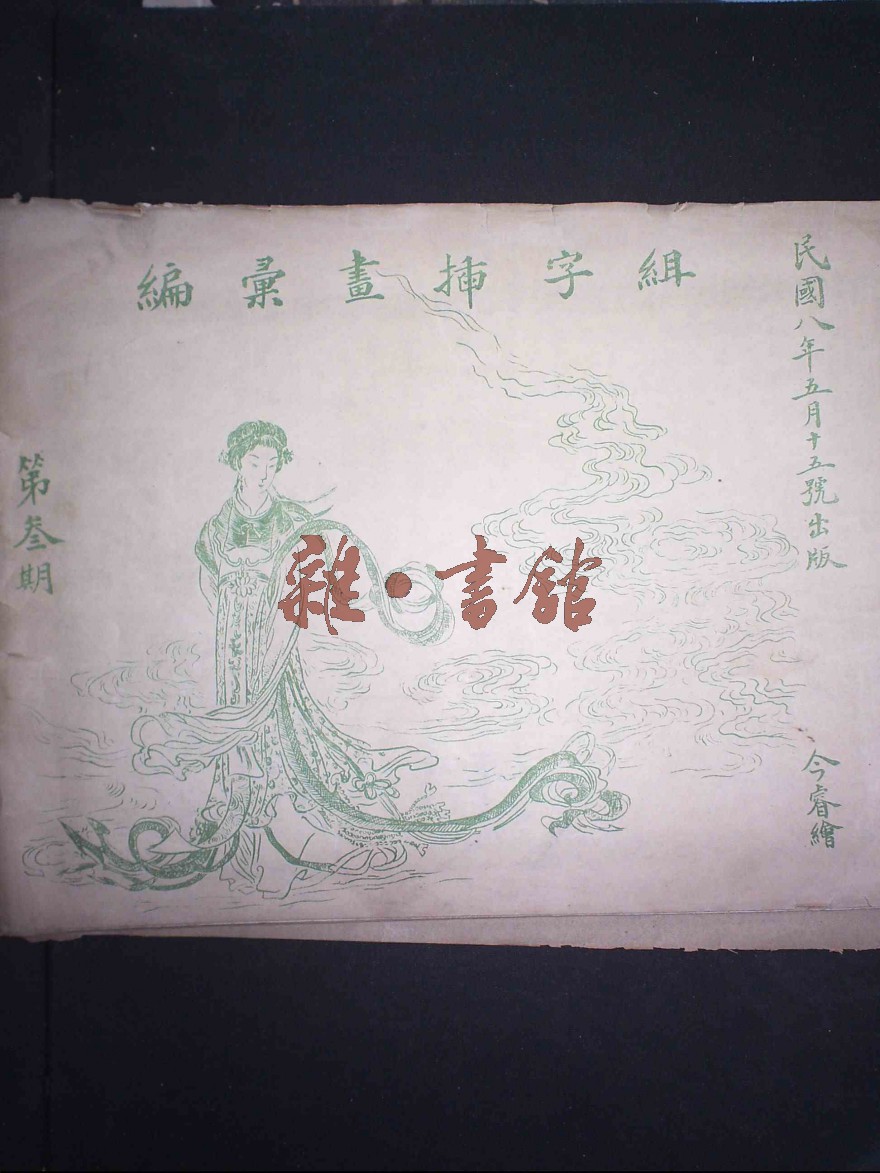 民國八年五月十五號出版
組字揷畫彙編
第叁期
今睿繪
雜·書館